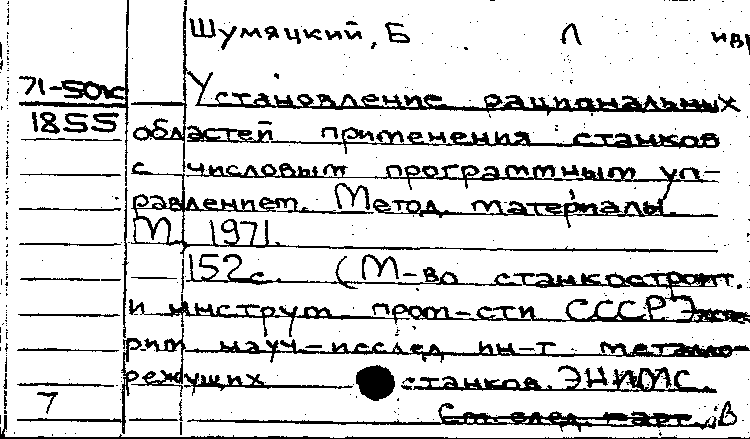 Шумяцкий, Б Л
71-50к Установление рациональных
1855 областей применения станков
с числовым программным уп-
равлением. Метод. материалы.
М. 1971.
152с. (М-во станкостроит.
и инструм. пром-сти СССР. Экспе
рим науч-исслед ин-т металло-
режущих станков. ЭНИМС.
7 См. след. карт. В